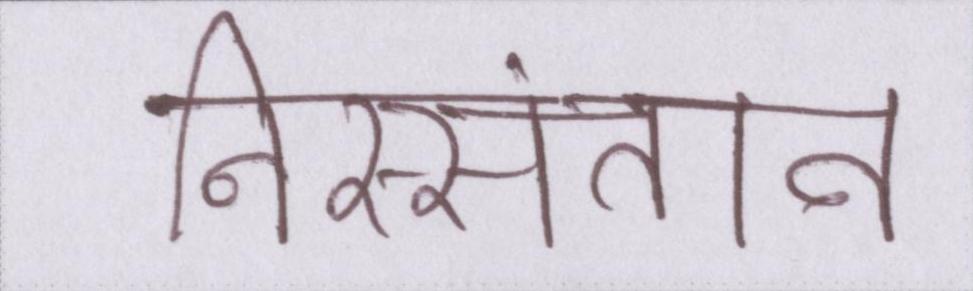 निस्संतान